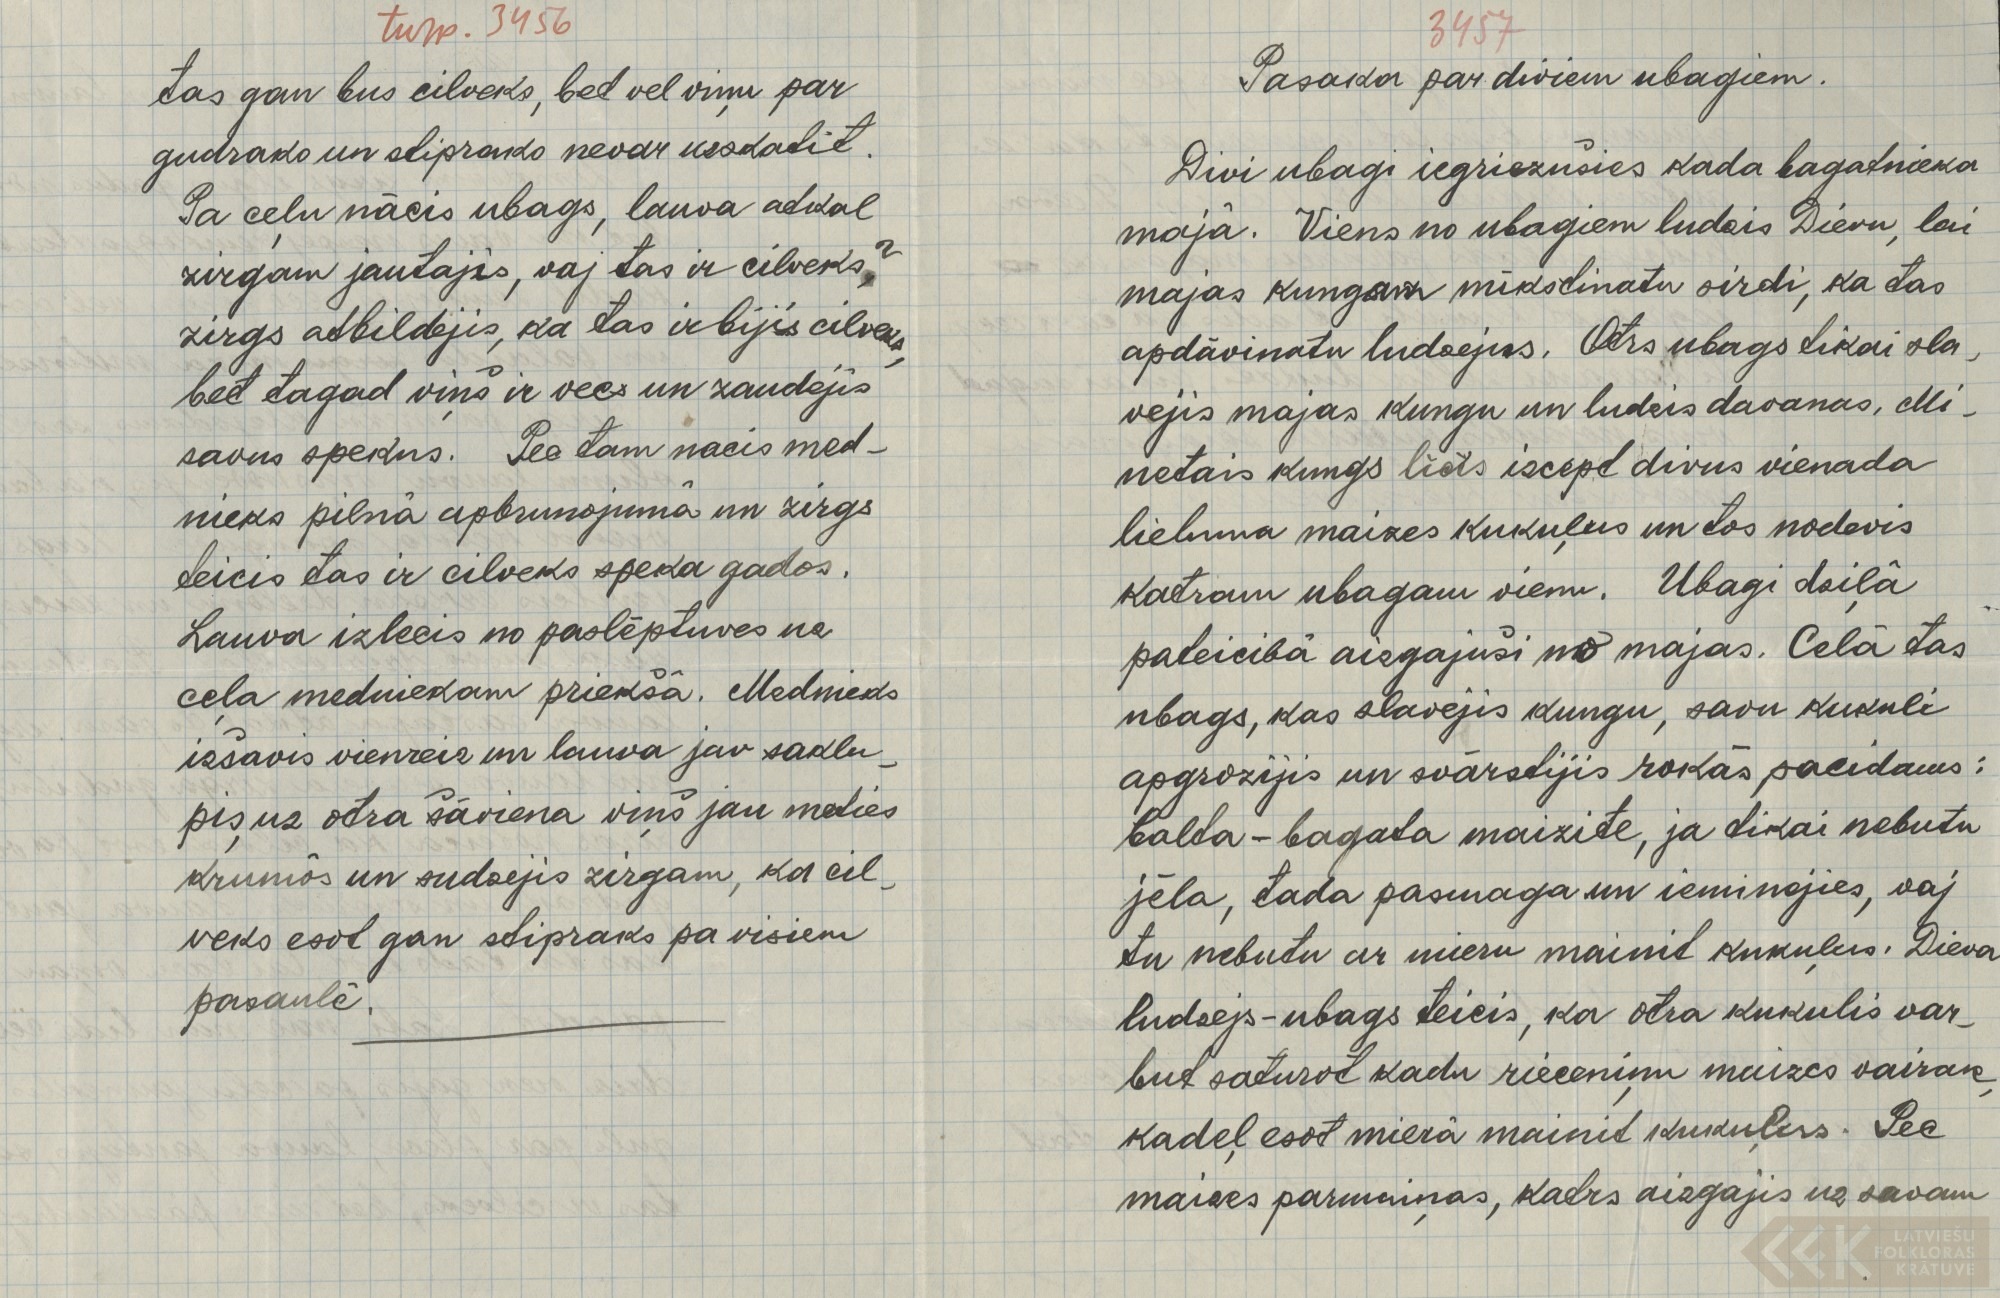 turp. 3456
tas gan bus cilveks, bet vel viņu par
gudrako un stiprako nevar uzskatit.
Pa ceļu nācis ubags, lauva atkal
zirgam jautajis, vaj tas ir cilveks?
zirgs atbildejis, ka tas ir bijis cilveks,
bet tagad viņš ir vecs un zaudejis
savus spekus. Pec tam nacis med-
nieks pilnâ apbrunojumâ un zirgs
teicis tas ir cilveks speka gados.
Lauva izlecis no paslēptuves uz
ceļa medniekam priekšâ. Mednieks
izšavis vienreiz un lauva jav saklu-
pis, uz otra šāviena viņš jau meties
krumôs un sudzejis zirgam, ka cil-
veks esot gan stipraks pa visiem
pasaulê.
3457
Pasaka par diviem ubagiem.
Divi ubagi iegriezušies kada bagatnieka
majâ. Viens no ubagiem ludzis Dievu, lai
majas kungam mīkstinatu sirdi, ka tas
apdāvinatu ludzejus. Otrs ubags tikai sla-
vejis majas kungu un ludzis davanas. Mi-
netais kungs licis izcept divus vienada
lieluma maizes kukuļus un tos nodevis
katram ubagam vienu. Ubagi dziļâ
pateicibâ aizgajuši no majas. Celâ tas
ubags, kas slavejis kungu, savu kukuli
apgrozijis un svārstijis rokās, sacidams:
balta - bagata maizite, ja tikai nebutu
jēla, tada pasmaga un ieminejies, vaj
tu nebutu ar mieru mainit kukuļus. Dieva
ludzejs-ubags teicis, ka otra kukulis var-
but saturot kadu riecenịņu maizes vairak,
kadeļ esot mierâ mainit kukuļus. Pec
maizes parmaiņas, katrs aizgajis uz savam
LATVIEŠU
FOLKLORAS
KRĀTUVE